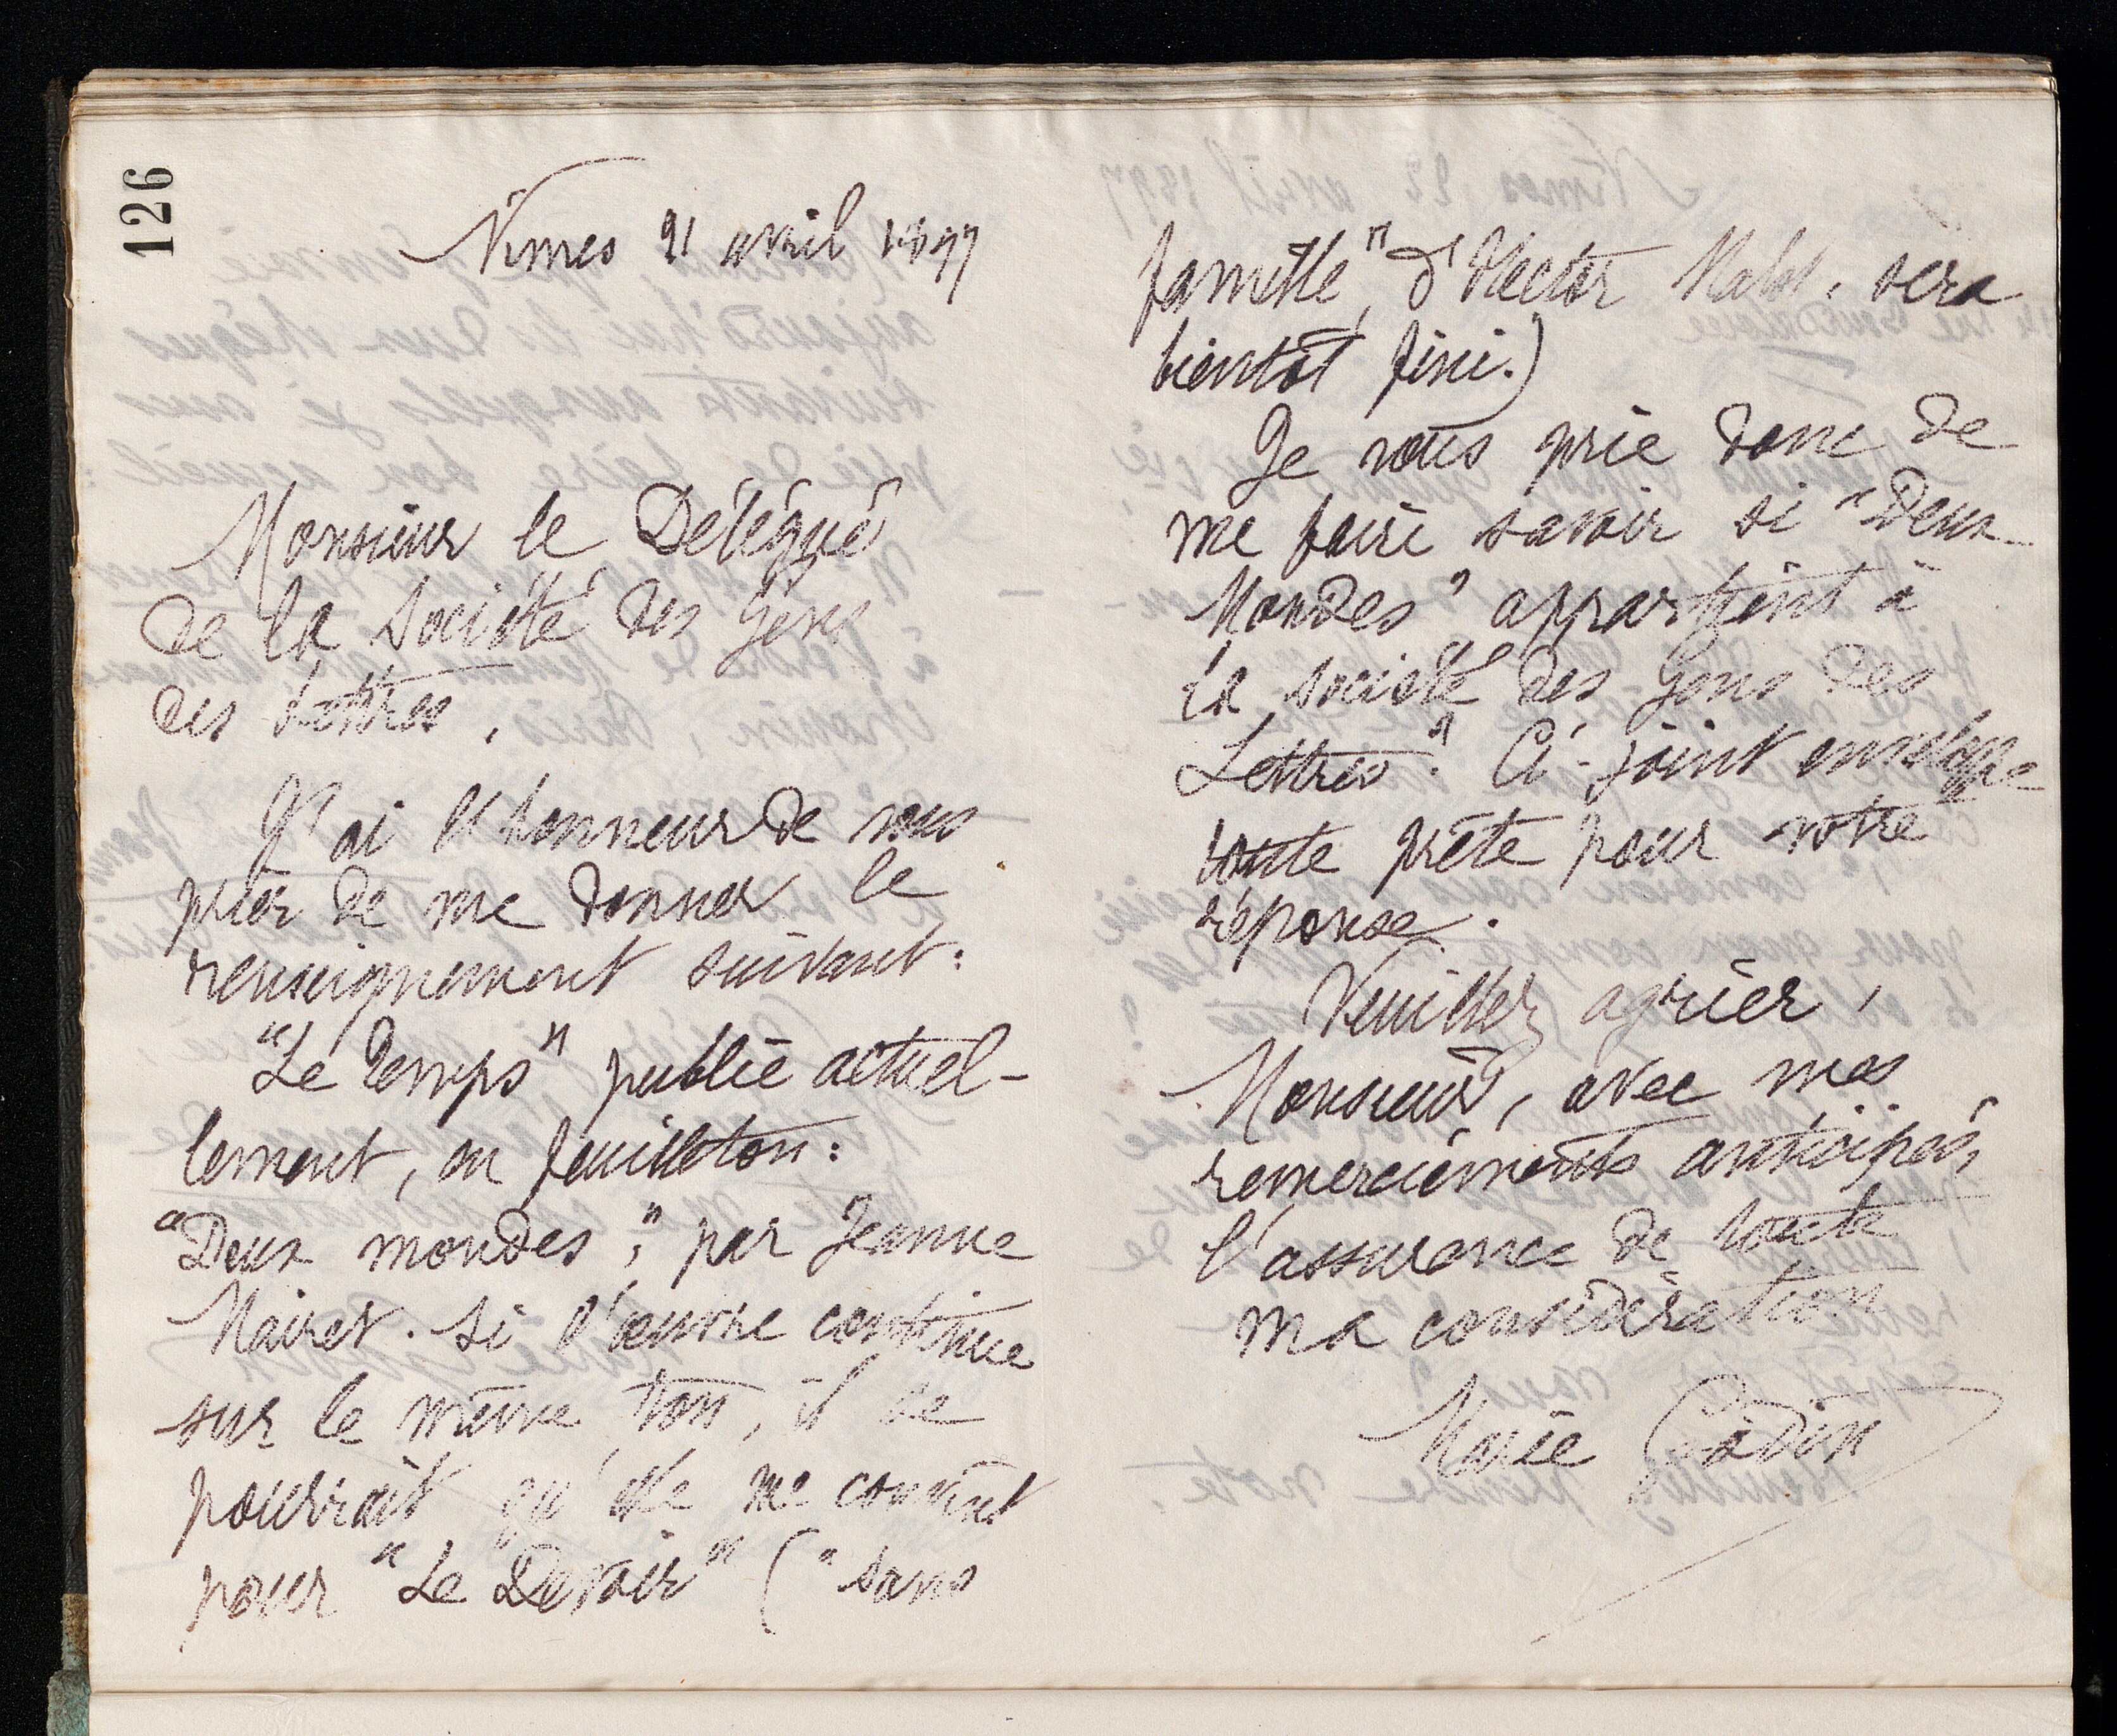 126
Nîmes 21 avril 1897
Monsieur le Délégué
de la Société des Gens
des Lettres,
J'ai l'honneur de vous
prier de me donner le
renseignement suivant:
"Le Temps" publie actuel-
lement, en feuilleton:
"Deux mondes," par Jeanne
Mairet. Si l'œuvre continue
sur le même ton, il se
pourrait qu'elle me convînt
pour "Le Devoir" ("Sans
famille", d'Hector Malot, sera
bientôt fini.)
Je vous prie donc de
me faire savoir si "Deux
Mondes" appartient à
la Société des Gens des
Lettres". Ci-joint enveloppe
toute prête pour votre
réponse.
Veuillez agréer,
Monsieur, avec mes
remerciements anticipés,
l'assurance de toute
ma considération
Marie Godin